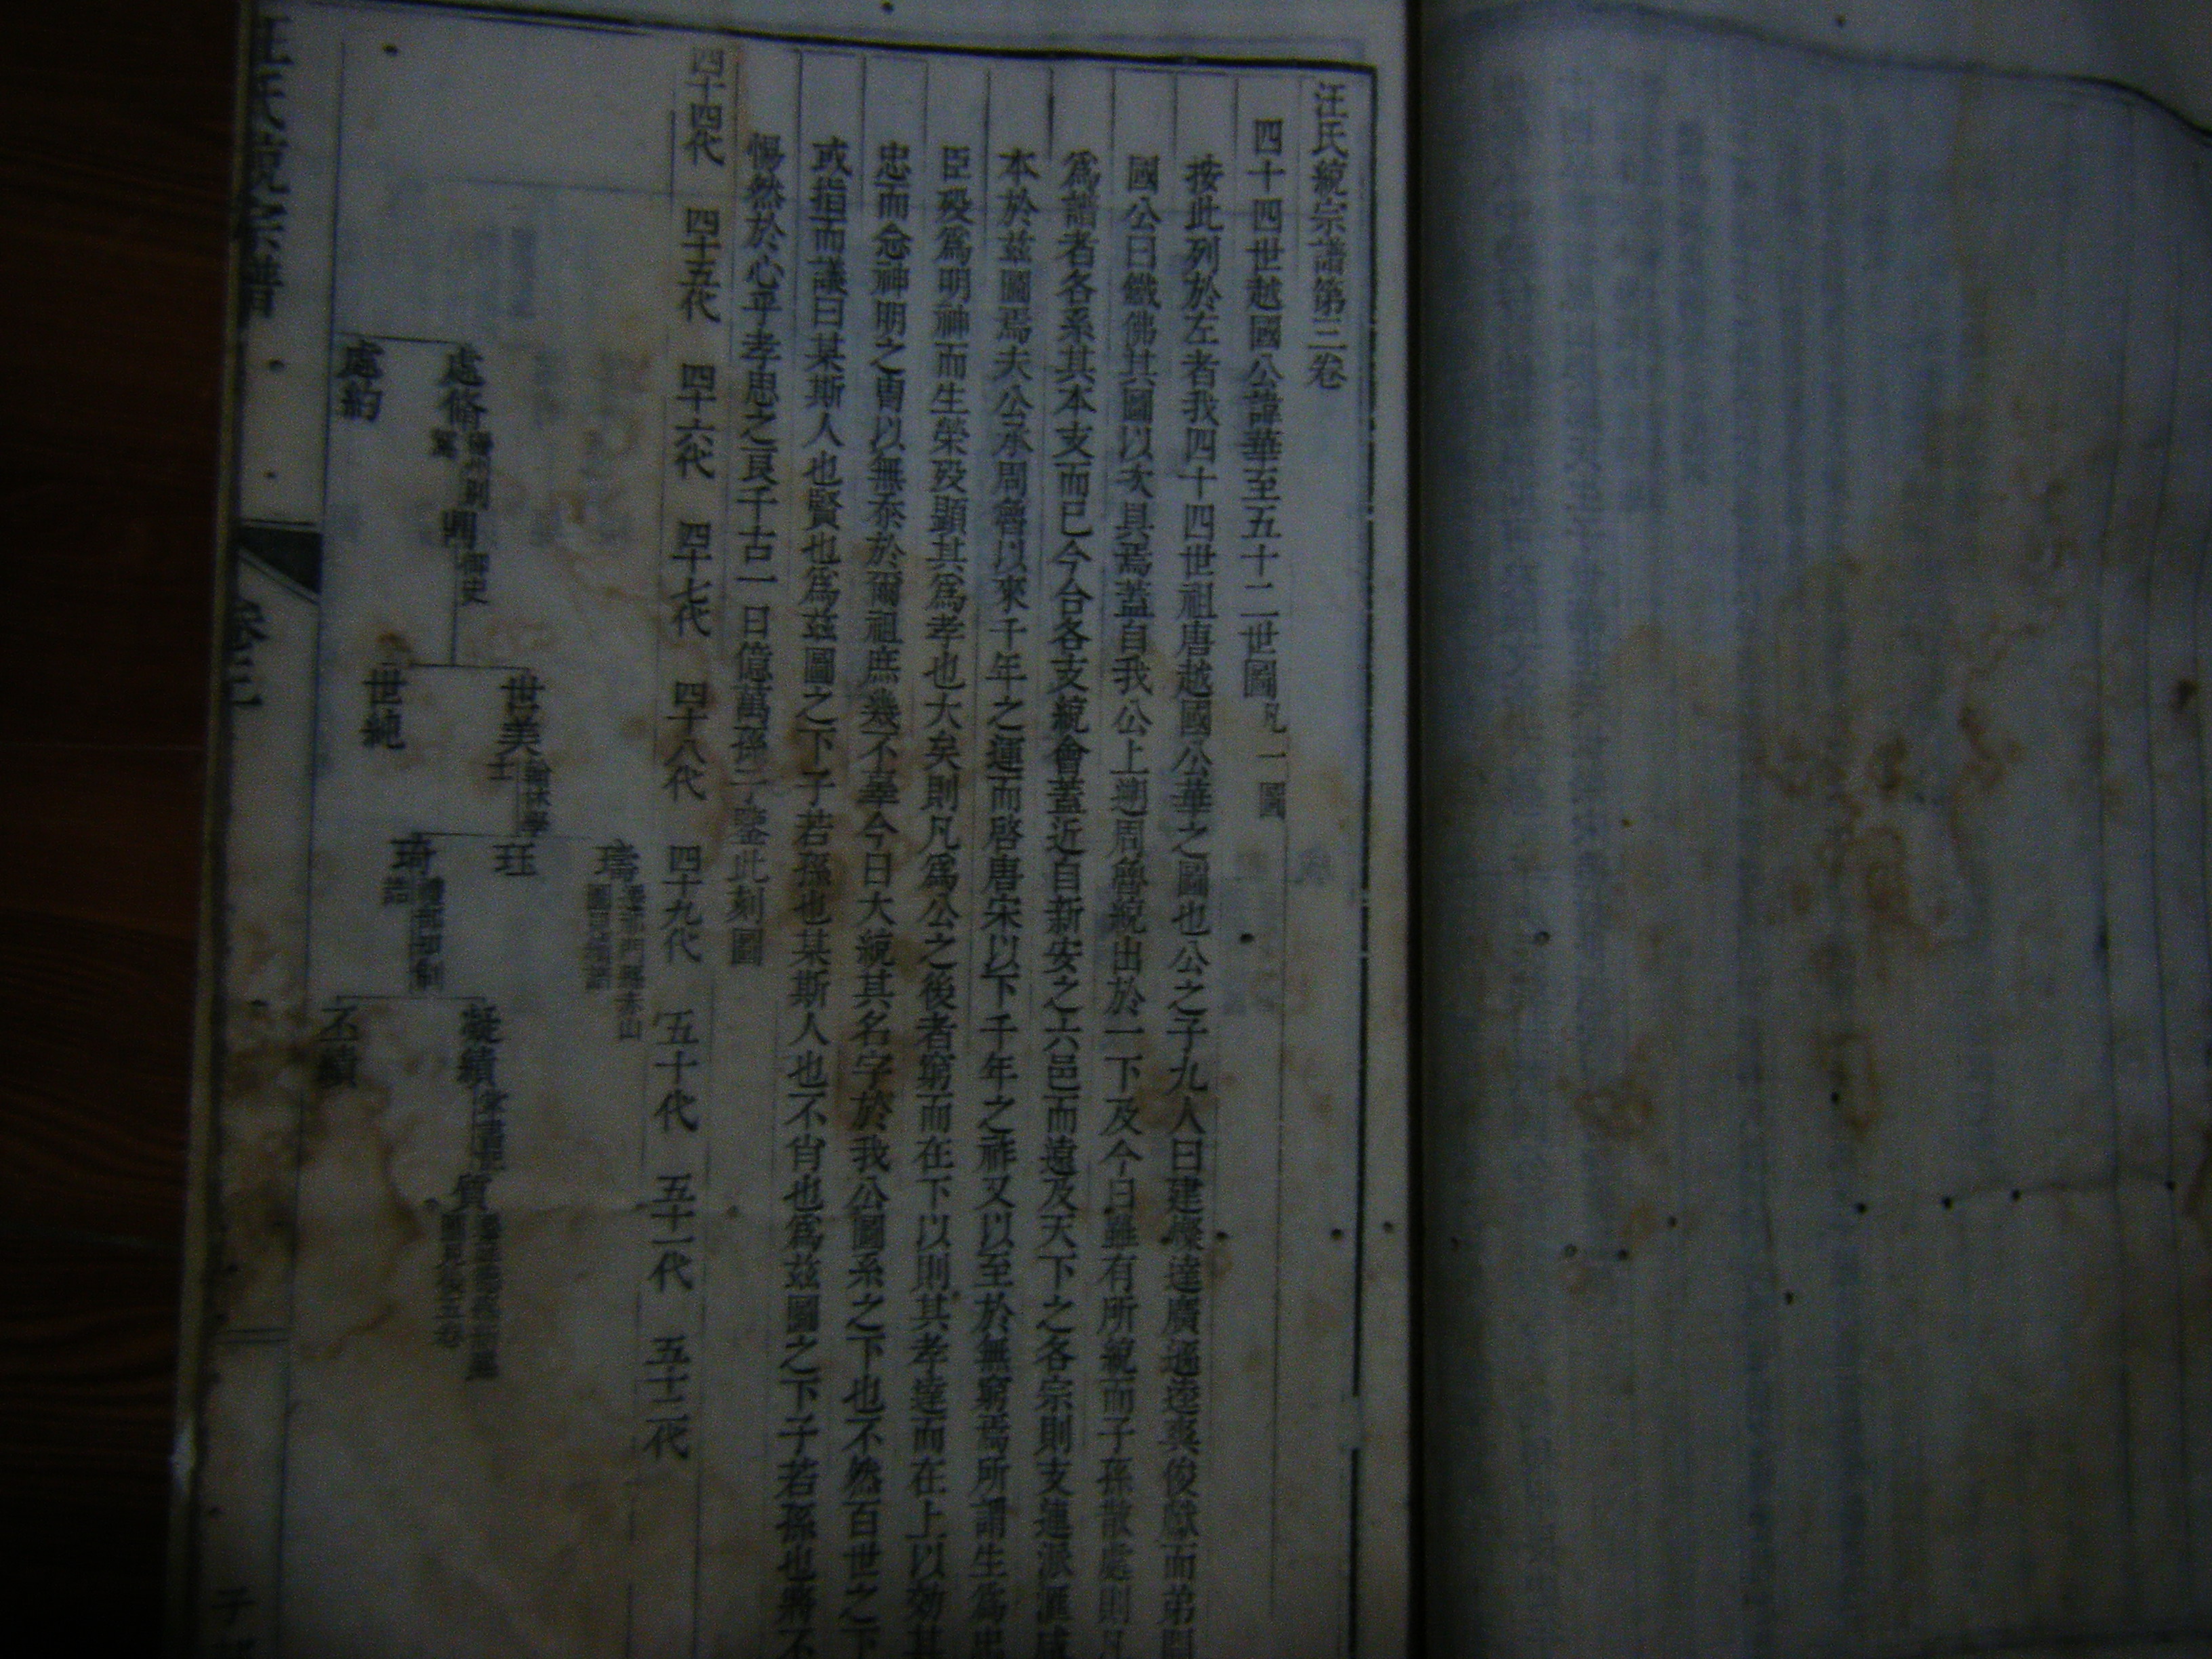 汪氏統宗譜第三卷
四十四世越國公諱華至五十二世圖凡一圖
按此列於左者我四十四世祖唐越國公華之圖也公之子九人曰建燦達廣遜逵爽俊獻而弟開
國公曰鐵佛其圖以次具焉蓋自我公上遡周魯統出於一下及今日雖有所統而子孫散處則凡
爲譜者各系其本支而已今合各支統會蓋近自新安之六邑而遠及天下之各宗則支連派滙咸
本於茲圖焉夫公承周魯以來千年之運而啓唐宋以下千年之祚又以至於無窮焉所謂生爲忠
臣歿爲明神而生榮歿顯其爲孝也大矣則凡爲公之後者窮而在下以則其孝達而在上以効其
忠而念神明之胄以無忝於爾祖庶幾不辜今日大統其名字於我公圖系之下也不然百世之下
或指而議曰某斯人也賢也爲茲圖之下子若孫也某斯人也不肖也爲茲圖之下子若孫也將不
惕然於心乎孝思之良千古一日億萬孫子鑒此刻圖
四十四代 四十五代 四十六代 四十七代 四十八代 四十九代 五十代 五十一代 五十二代
璹
世美 翰林學士
珏
處脩 刺 御史
凝績 質
世純
琦 禮部郎制誥
處約
丕績
汪氏統宗譜 卷三